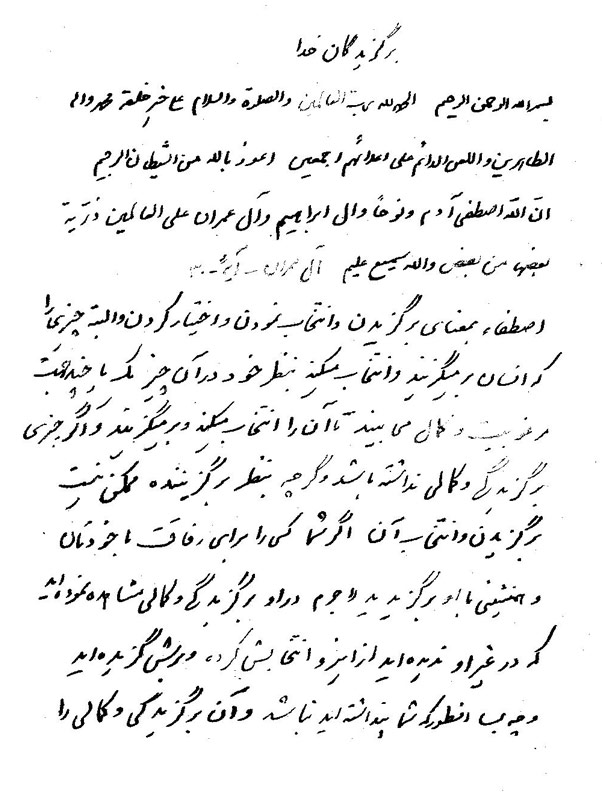 برگزیدگان خدا
بسم الله الرحمن الرحیم الحمد لله رب العالمین والصلوة والسلام علی خیر خلقه محمد واله
الطاهرین واللعن الدائم علی اعدائهم اجمعین اعوذ بالله من الشیطان الرجیم
ان الله اصطفی آدم ونوحاً وال ابراهیم وآل عمران علی العالمین ذریة
بعضها من بعض والله سمیع علیم آل عمران - آیه - ۳۰
اصطفاء بمعنای برگزیدن وانتخاب نمودن و اختیار کردن والبته چیزی را
که انسان برمیگزیند وانتخاب میکند بنظر خود در آن چیز یک یا چند جهت
مرغوبیت و کمال می بیند تا آن را انتخاب میکند وبرمیگزیند واگر چیزی
برگزیدگی وکمالی نداشته باشد وگرچه بنظر برگزیننده ممکن نیست
برگزیدن وانتخاب آن اگر شما کسی را برای رفاقت با خودتان
و همنشینی با او برگزیدید لاجرم در او برگزیدگی وکمالی مشاهده نموده اید
که در غیر او ندیده اید از اینرو انتخابش کرده وبرش گزیده اید
وچه بسا انطور که شما پنداشته اید نباشد وآن برگزیدگی وکمالی را